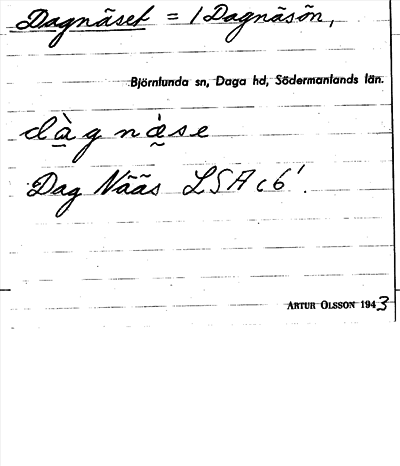 Dagnäset = / Dagnäsön,
Björnlunda sn, Daga hd, Södermanlands län.
dà̱g nǽ̰se
Dag Nääs LSA c6'.
ARTUR OLSSON 1943